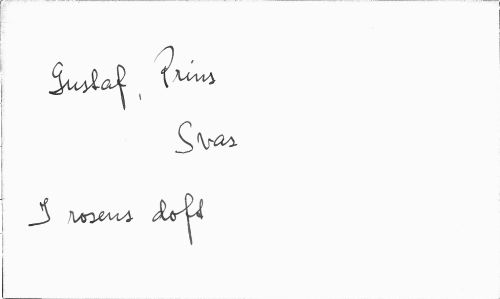 Gustaf, Prins
Svas
I rosens doft